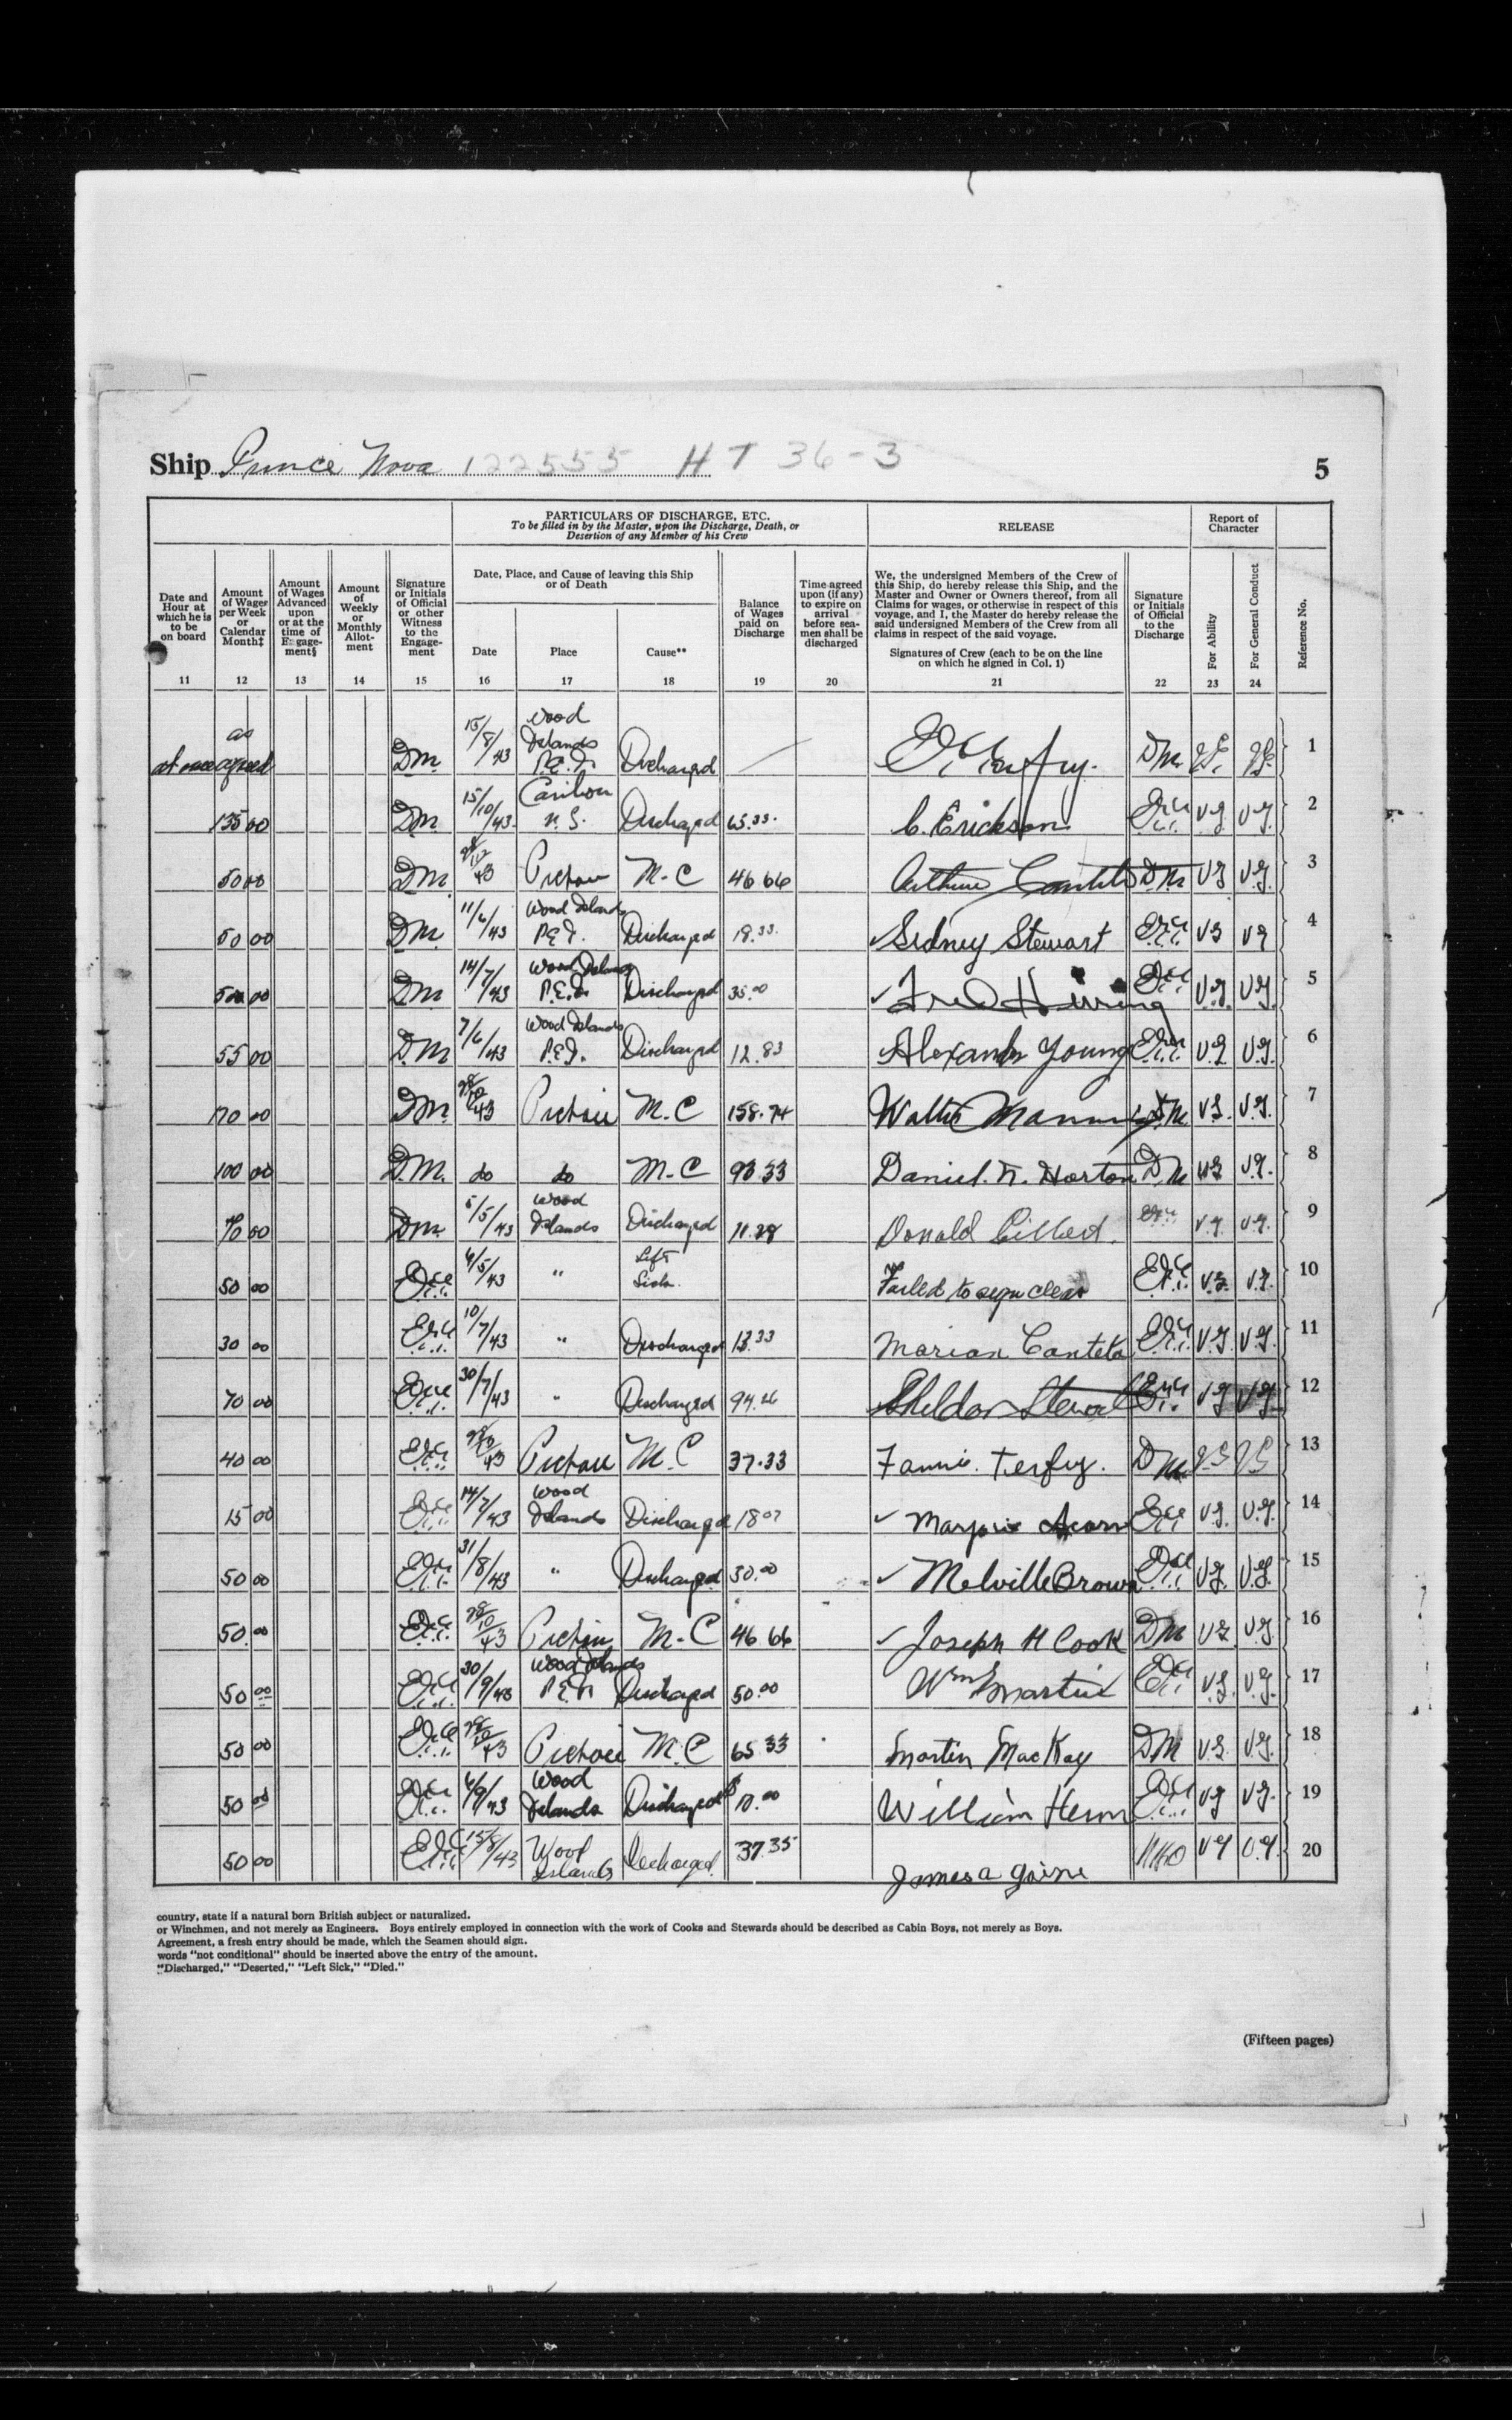 Ship Prince Nova 122555 H T 36-3 5
PARTICULARS OF DISCHARGE, ETC.
To be filled in by the Master, upon the Discharge, Death, or
Desertion of any Member of his Crew
RELEASE
Report of
Character
Date and
Hour at
which he is
to be
on board
Amount
of Wages
per Week
or
Calendar
Month‡
Amount
of Wages
Advanced
upon
or at the
time of
Engage-
ment§
Amount
of
Weekly
or
Monthly
Allot-
ment
Signature
or Initials
of Official
or other
Witness
to the
Engage-
ment
Date, Place, and Cause of leaving this Ship
or of Death
Date
Place
Cause**
Balance
of Wages
paid on
Discharge
Time agreed
upon (if any)
to expire on
arrival
before sea-
men shall be
discharged
We, the undersigned Members of the Crew of
this Ship, do hereby release this Ship, and the
Master and Owner or Owners thereof, from all
Claims for wages, or otherwise in respect of this
voyage, and I, the Master do hereby release the
said undersigned Members of the Crew from all
claims in respect of the said voyage.
Signatures of Crew (each to be on the line
on which he signed in Col. 1)
Signature
or Initials
of Official
to the
Discharge
For Ability
For General Conduct
Reference No.
11 12 13 14 15 16 17 18 19 20 21 22 23 24
at once as agreed DM. 15/8/43 Wood Islands P.E.I. Discharged DM 1
135 00 DM. 15/10/43 Caribou N.S. Discharged 65.33 C. Erickson V.G V.G. 2
50 00 DM. 28/10/43 Pictou M.C 46 66 Arthur DM VG V.G. 3
50 00 DM. 11/6/43 Wood Islands P.E.I. Discharged 18.33 ✓Sidney Stewart VG VG 4
00 DM 14/7/43 Wood Islands P.E.I. Discharged 35.00 ✓Fred Herring V.G. V.G. 5
55 00 D.M 7/6/43 Wood Islands P.E.I. Discharged 12.83 Alexander Young V.G V.G. 6
170 00 DM. 28/10/43 Pictou M.C 158.74 Walter Manning D.M. V.G. V.G. 7
100 00 D.M. do do M-C 93.33 Daniel. N. Horton D.M VG V.G. 8
70 00 DM. 5/5/43 Wood Islands Discharged 11.28 Donald V.G. V.G. 9
50 00 6/5/43 " Left Sick. Failed to sign clear V.G. V.G. 10
30 00 10/7/43 " Discharged 13.33 Marion V.G. V.G. 11
70 00 30/7/43 " Discharged 94. Sheldon Stewart V.G V.G. 12
40 00 28/10/43 Pictou M.C 37.33 Fannie. DM VG VG 13
15 00 14/7/43 Wood Islands Discharged 18 07 ✓ Marjorie Acorn V.G. V.G. 14
50 00 31/8/43 " Discharged 30.00 ✓ Melville Brown V.G. V.G. 15
50.00 28/10/43 Pictou M.C 46 66 ✓ Joseph H Cook DM VG V.G 16
50 00 30/9/43 Wood Islands P.E.I. Discharged 50.00 Wm Martin V.G. V.G. 17
50 00 28/10/43 Pictou M.C 65 33 Martin MacKay DM V.G. V.G. 18
50 00 6/9/43 Wood Islands Discharged $10.00 William V.G V.G. 19
50 00 15/8/43 Wood Islands Discharged. 37.35 James A V.G V.G. 20
country, state if a natural born British subject or naturalized.
or Winchmen, and not merely as Engineers. Boys entirely employed in connection with the work of Cooks and Stewards should be described as Cabin Boys, not merely as Boys.
Agreement, a fresh entry should be made, which the Seamen should sign.
words "not conditional" should be inserted above the entry of the amount.
"Discharged," "Deserted," "Left Sick," "Died."
(Fifteen pages)